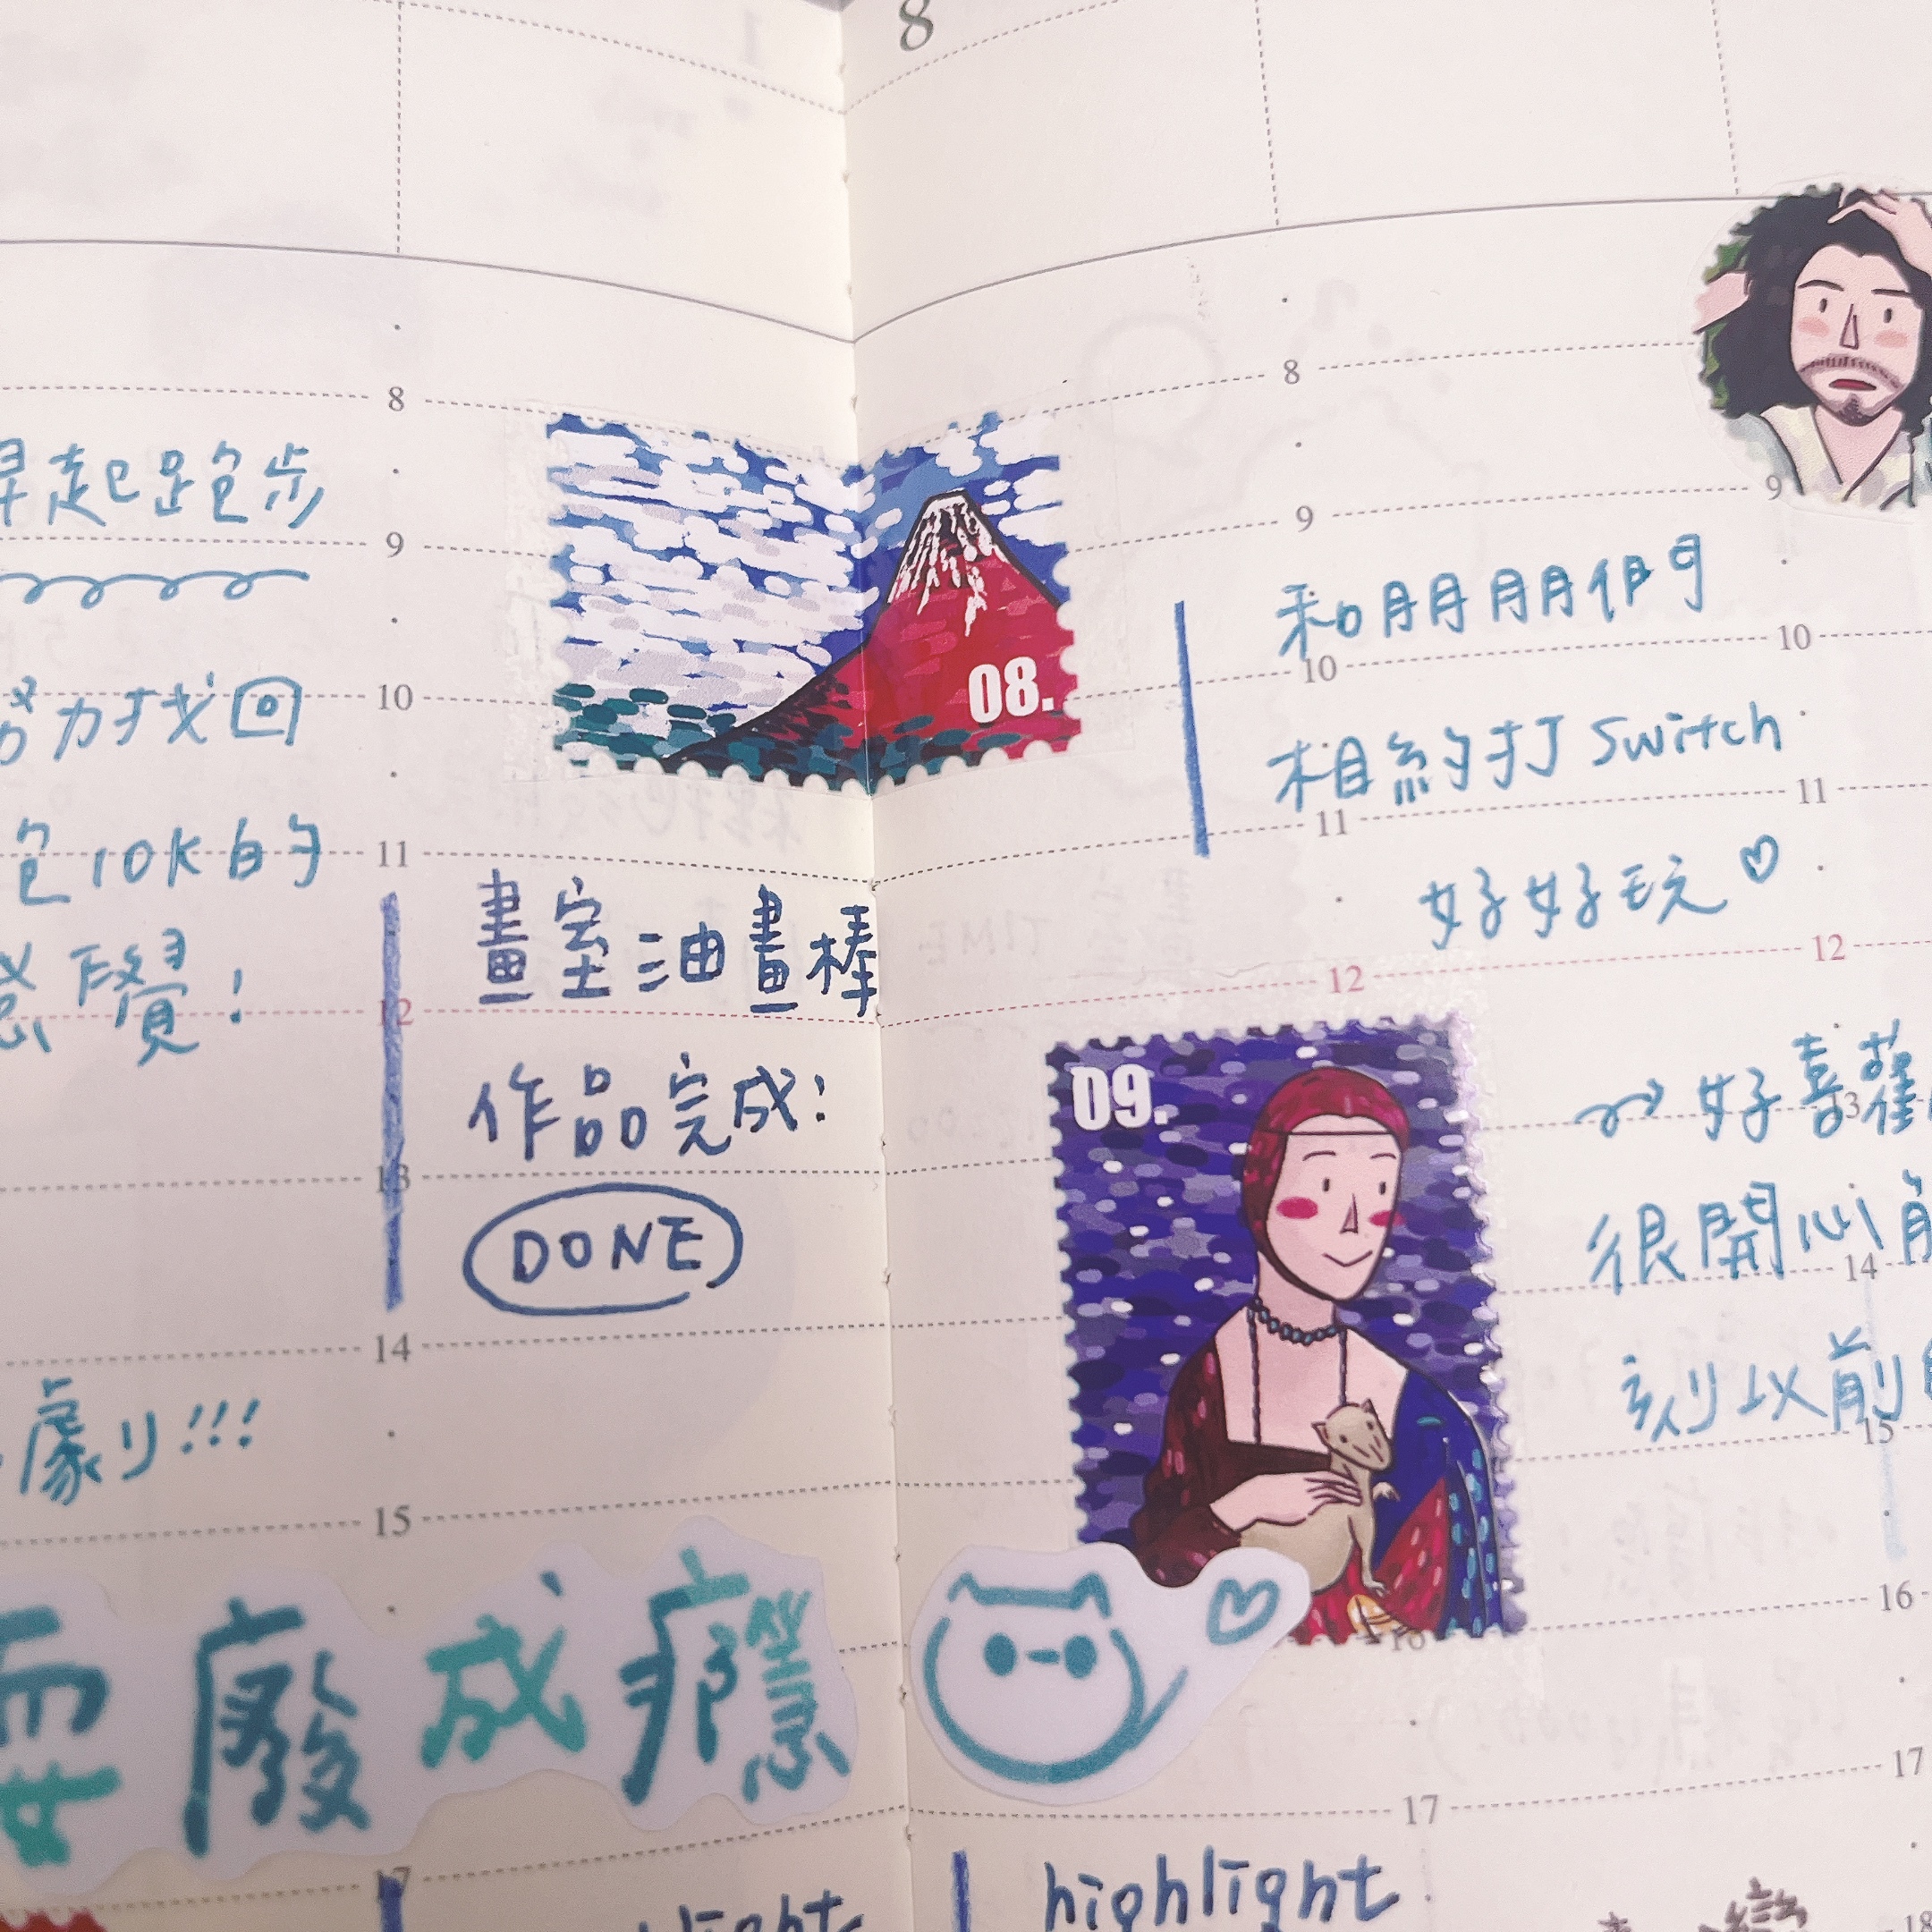 8
早起跑步
努力找回
跑10K的
感覺!
劇!!!
耍廢成癮
8
9
10
11
12
13
14
15
17
08.
畫室油畫棒
作品完成!
DONE
8
9
10
11
12
和朋朋朋們
相約打Switch
好好玩♡
09.
16
17
highlight
9
10
11
12
13
14
15
16
17
18
好喜歡
很開心
刻以前